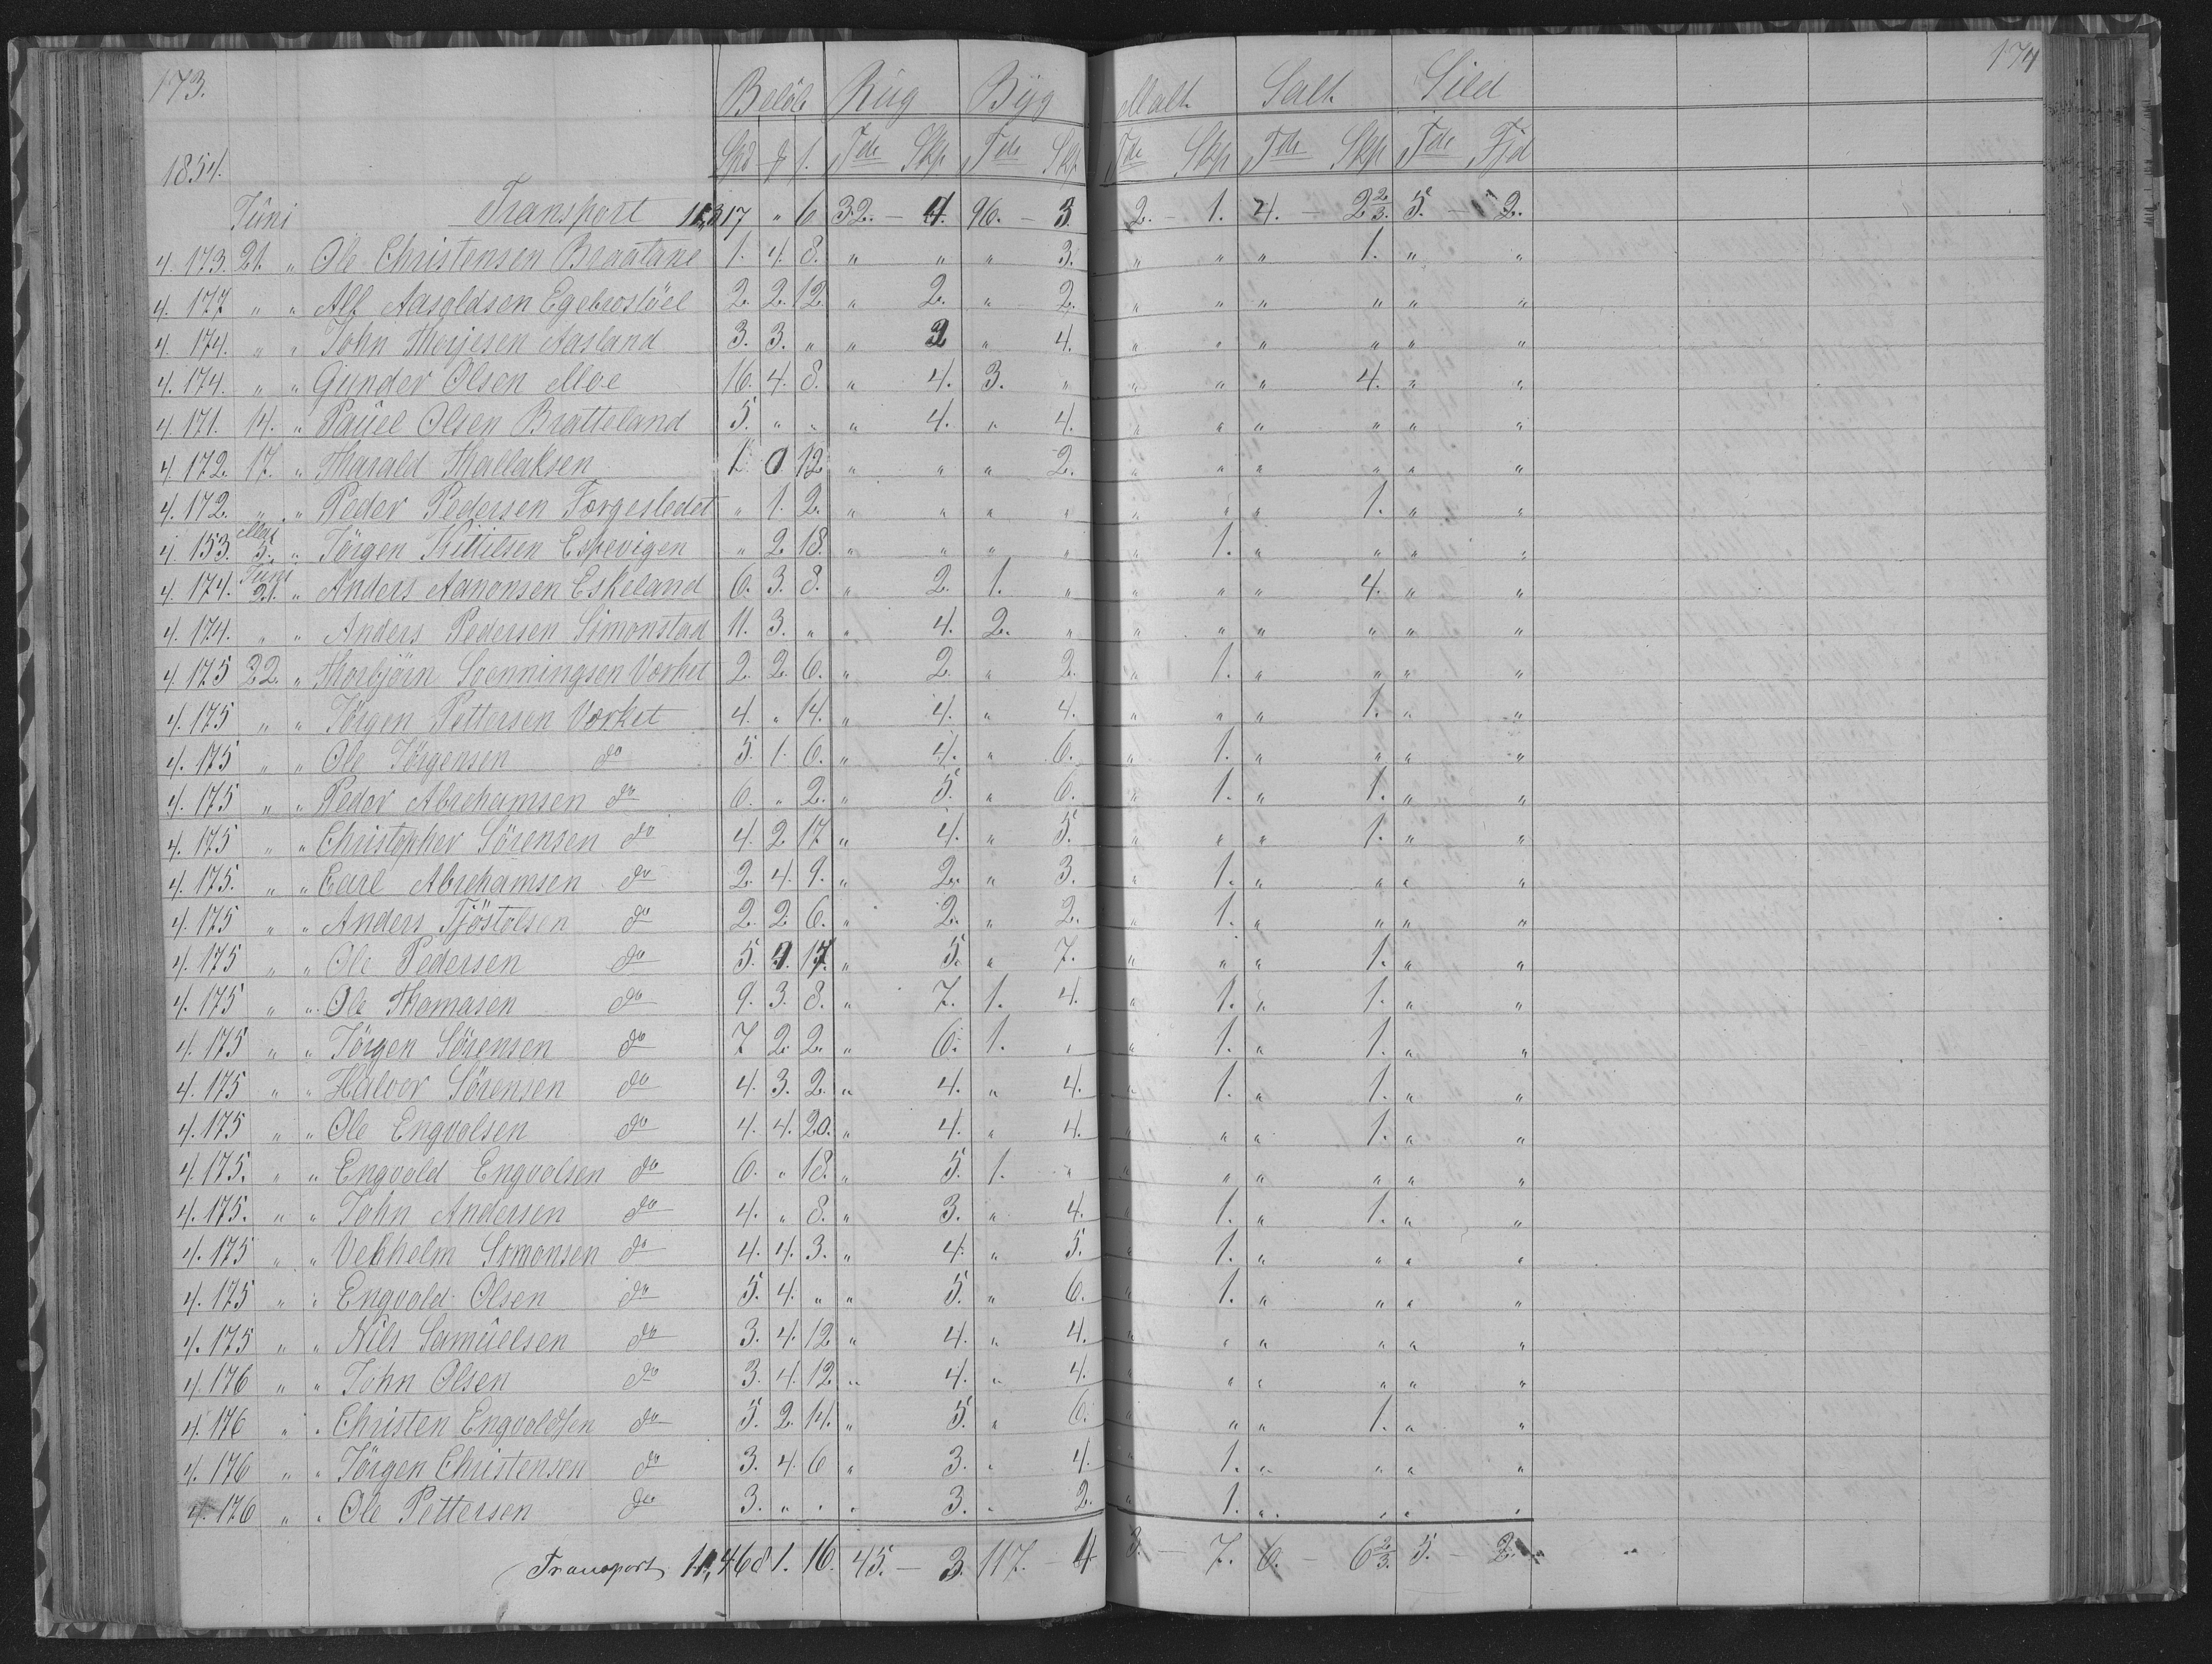 173. 174
Beløb Rûg Byg Malt. Salt. Sild
1854. Spd ₰ s. Tdr Skp Tdr Skp Tdr Skp Tdr Skp Tdr Fjd
Juni Transport 11,317 " 6 32. - 4. 96. - 3. 2. - 1. 4. - 2 2/3. 5. - 2.
4. 173. 21. " Ole Christensen Braatane 1. 4. 8. " " " 3. " " " 1. " "
4. 177 " " Alf Aasoldsen Egebrostöel 2. 2. 12. " 2. " 2. " " " " " "
4. 174. " " John Therjesen Aasland 3. 3. " " 2 " 4. " " " " " "
4. 174. " " Gunder Olsen Moe 16. 4. 8. " 4. 3. " " " " 4. " "
4. 171. 14. " Paûel Olsen Bratteland 5. " " " 4. " 4. " " " " " "
4. 172. 17. " Harald Thallaksen 1. 0 12 " " " 2. " " " " " "
4. 172. " " Peder Pedersen Torgesledet " 1. 2. " " " " " " " 1. " "
4. 153. Mai 5. " Jörgen Kittilsen Espevigen " 2 18. " " " " " 1. " " " "
4. 174. Juni 21. " Anders Aanonsen Eskeland 6. 3. 8. " 2. 1. " " " " 4. " "
4. 174. " " Anders Pedersen Simonstad 11. 3. " " 4. 2. " " " " " " "
4. 175 22. " Thorbjörn Svenningsen Værket 2. 2. 6. " 2. " 2. " 1. " " " "
4. 175 " " Jörgen Pettersen Værket 4. " 14. " 4. " 4. " " " 1. " "
4. 175 " " Ole Jörgensen do 5. 1. 6. " 4. " 6. " 1. " " " "
4. 175 " " Peder Abrehamsen do 6. " 2. " 5. " 6. " 1. " 1. " "
4. 175 " " Christopher Sörensen do 4. 2. 17 " 4. " 5. " " " 1. " "
4. 175. " " Carl Abrehamsen do 2. 4. 9. " 2. " 3. " 1. " " " "
4. 175 " " Anders Tjöstolsen do 2. 2. 6. " 2. " 2. " 1. " " " "
4. 175 " " Ole Pedersen do 5. 4. 17. " 5. " 7. " " " 1. " "
4. 175 " " Ole Thomasen do 9. 3. 8. " 7. 1. 4. " 1. " 1. " "
4. 175 " " Jörgen Sörensen do 7 2. 2. " 6. 1. " " 1. " 1. " "
4. 175 " " Halvor Sörensen do 4. 3. 2. " 4. " 4. " 1. " 1. " "
4. 175 " " Ole Engvolsen do 4. 4. 20. " 4. " 4. " " " 1. " "
4. 175. " " Engvold Engvolsen do 6. " 18. " 5. 1. " " " " " " "
4. 175. " " John Andersen do 4. " 8. " 3. " 4. " 1. " 1. " "
4. 175 " " Velhelm Simonsen do 4. 4. 3. " 4. " 5. " 1. " " " "
4. 175 " " Engvold Olsen do 5. 4. " " 5. " 6. " 1. " " " "
4. 175 " " Nils Samûelsen do 3. 4. 12 " 4. " 4. " " " " " "
4. 176 " " John Olsen do 3. 4. 12 " 4. " 4. " " " " " "
4. 176 " " Christen Engvoldsen do 5. 2. 14. " 5. " 6. " " " 1. " "
4. 176 " " Jörgen Christensen do 3. 4. 6 " 3. " 4. " 1. " " " "
4. 176 " " Ole Pettersen do 3. " " " 3. " 2. " 1. " " " "
Transport 11,468 1. 16. 45. - 3. 117. - 4 3. - 7. 6. - 6 2/3. 5. - 2.